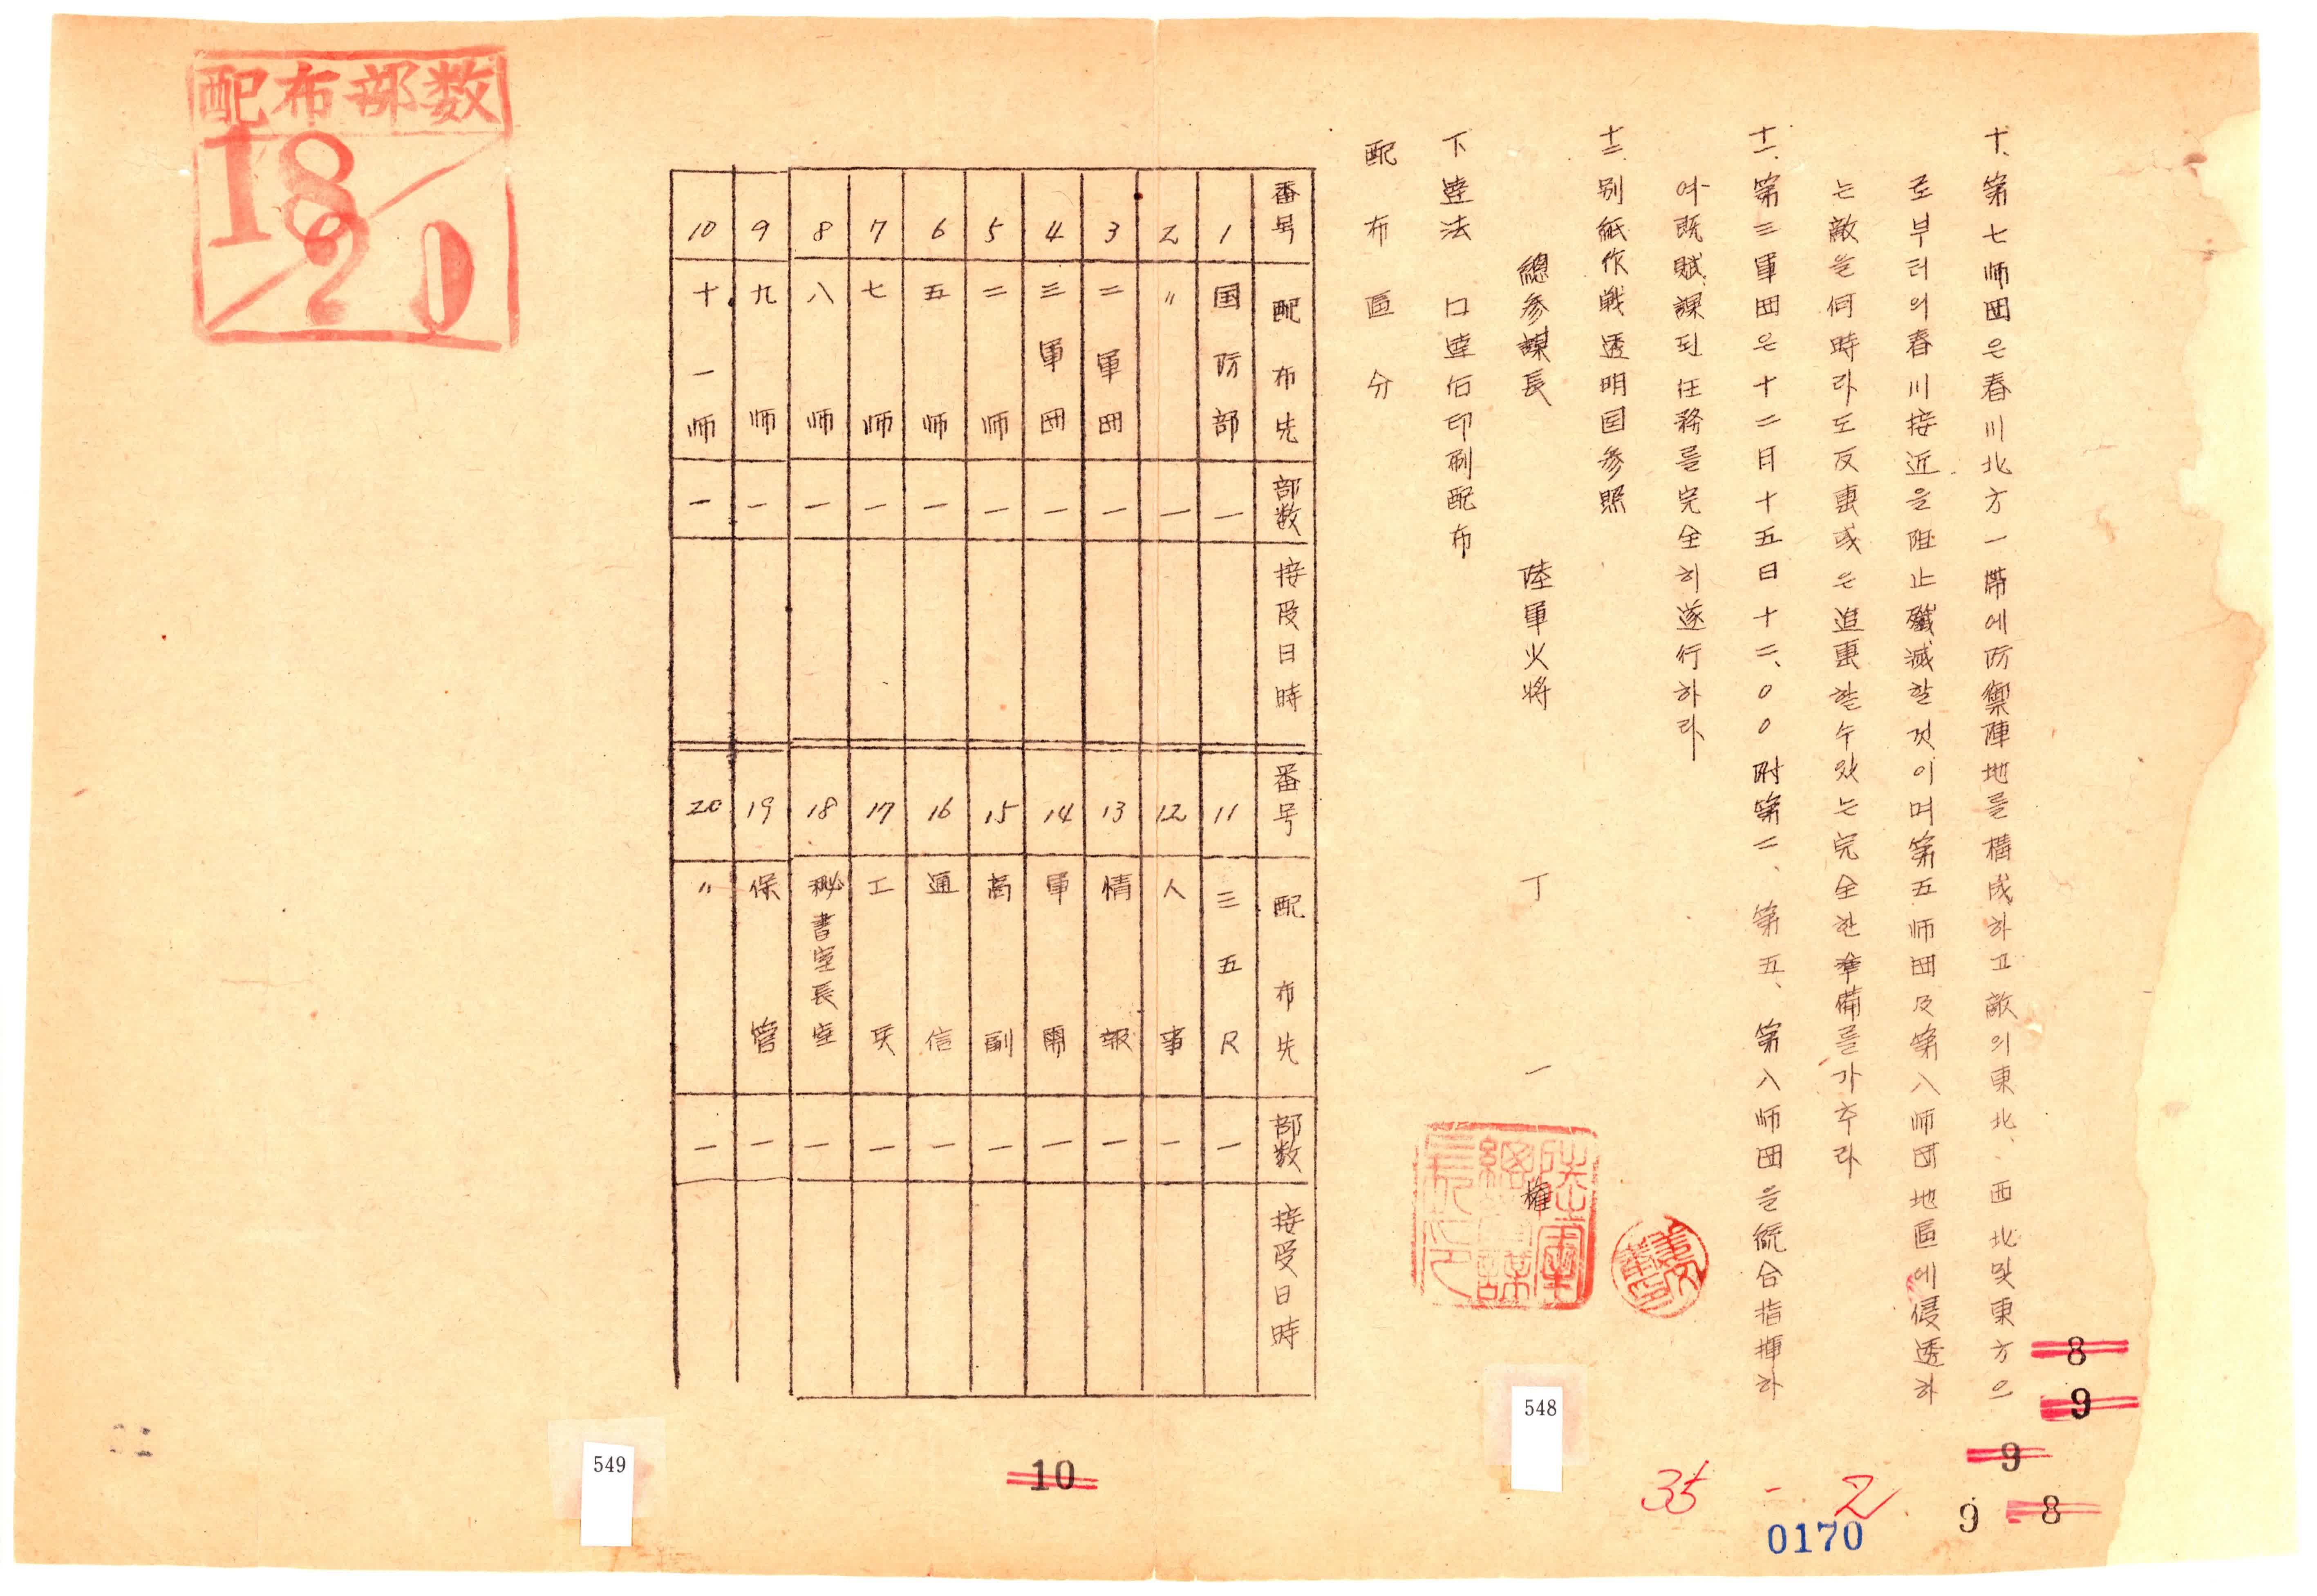 十、第七师団은春川北方一帯에防禦陣地를構成하고敵의東北、西北및東方으
로부터의春川接近을阻止殲滅할것이며第五师団及第八师団地區에侵透하
는敵을何時라도反擊或은追擊할수있는完全한準備를가추라
十一、第三軍団은十二月十五日十二、〇〇附第二、第五、第八师団을統合指揮하
여既賦課된任務를完全히遂行하라
十二、別紙作戦透明国参照
總参謀長 陸軍少将 丁一權
下達法 口達后印刷配布
配布區分
番号 配布先 部数 接受日時 番号 配布先 部数 接受日時
1 国防部 一 11 三五R 一
2 〃 一 12 人事 一
3 二軍団 一 13 情報 一
4 三軍団 一 14 軍需 一
5 二师 一 15 高副 一
6 五师 一 16 通信 一
7 七师 一 17 工兵 一
8 八师 一 18 秘書室長室 一
9 九师 一 19 保管 一
10 十一师 一 20 〃 一
配布部数
18/20
8
9
9
9 - 8
10
548
549
35 - 2
0170